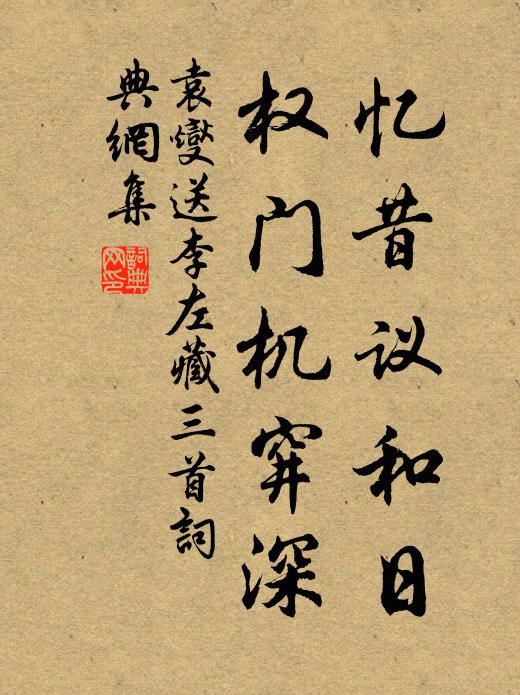 忆昔议和日
权门机穽深
袁燮送李左藏三首詞
典網集
詞典
网印